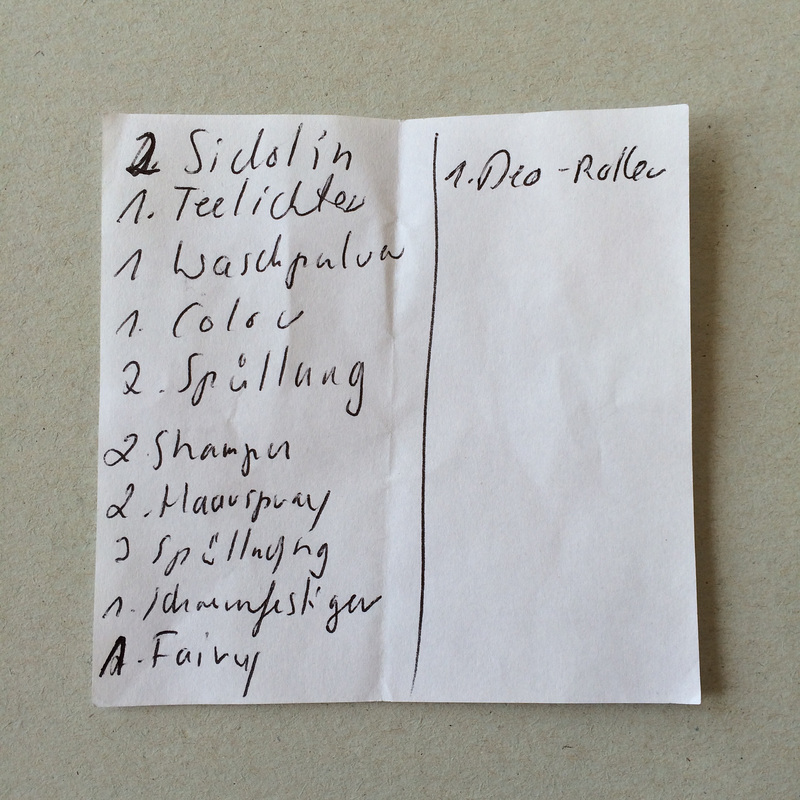 2 Sidolin
1. Teelichter
1 Waschpulver
1. Color
2. Spüllung
2. Shampu
2. Haarspray
3 Spüllung
1. Schaumfestiger
1. Fairy
1. Deo-Roller